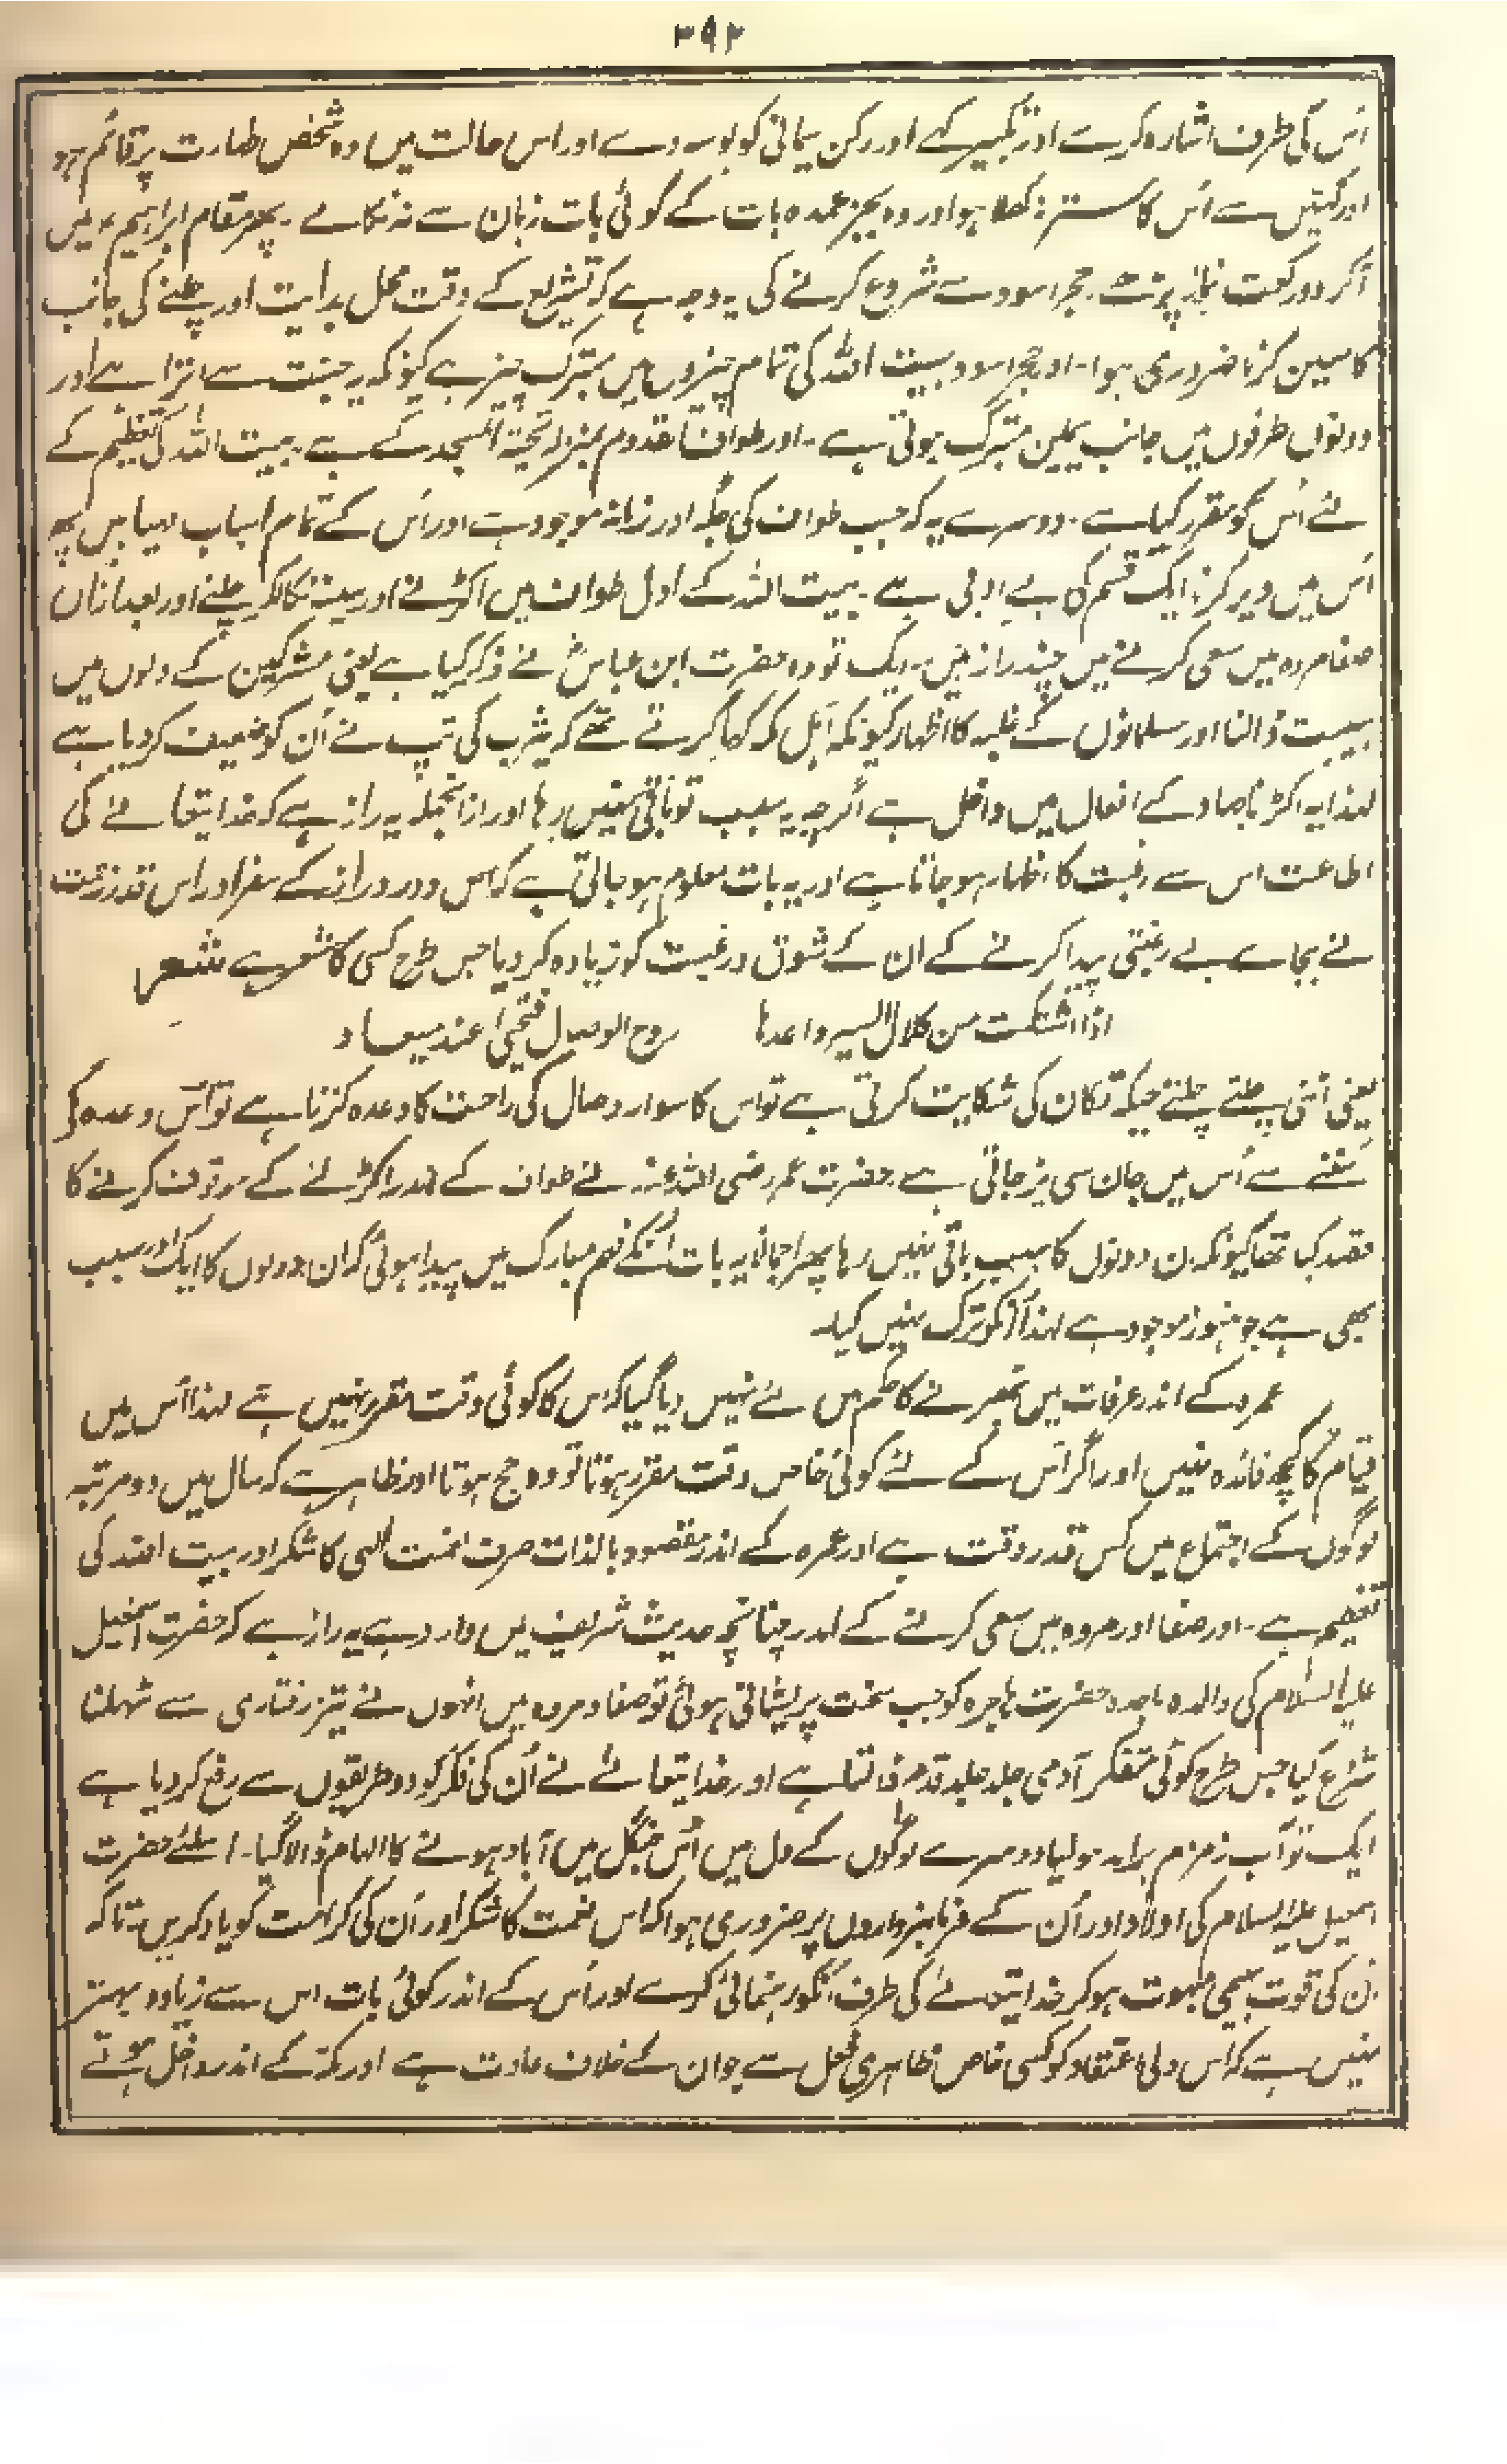 ۳۹۲
اُس کی طرف اشارہ کرے اور تکبیر کہے اور رکن یمانی کو بوسہ دے اور اس حالت میں وہ شخص طہارت پر قائم ہو
اور کہیں سے اُس کا ستر نہ کھلا ہو اور وہ بجز عمدہ بات کے کوئی بات زبان سے نہ نکالے ۔ پھر مقام ابراہیم ؑ میں
آکر دو رکعت نماز پڑھے ۔ حجر اسود سے شروع کرنے کی یہ وجہ ہے کہ تشریع کے وقت محل بدایت اور چلنے کی جانب
کا معین کرنا ضروری ہوا ۔ اور حجر اسود بیت اللہ کی تمام چیزوں میں متبرک چیز ہے کیونکہ یہ جنت سے اترا ہے اور
دونوں طرفوں میں جانب یمین متبرک ہوتی ہے ۔ اور طواف قدوم بمنزلہ تحیۃ المسجد کے ہے ۔ بیت اللہ کی تعظیم کے
لئے اُس کو مقرر کیا ہے ۔ دوسرے یہ کہ جب طواف کی جگہ اور زمانہ موجود ہے اور اُس کے تمام اسباب مہیا ہیں پھر
اُس میں دیر کرنا ایک قسم کی بے ادبی ہے ۔ بیت اللہ کے اول طواف میں اکڑنے اور سینہ نکالکر چلنے اور بعد ازاں
صفا مروہ میں سعی کرنے میں چند راز ہیں ۔ ایک تو وہ حضرت ابن عباسؓ نے ذکر کیا ہے یعنی مشرکین کے دلوں میں
ہیبت ڈالنا اور مسلمانوں کے غلبہ کا اظہار کیونکہ اہل مکہ کہا کرتے تھے کہ یثرب کی تپ نے اُن کو ضعیف کر دیا ہے
لہذا یہ اکڑنا جہاد کے افعال میں داخل ہے اگرچہ یہ سبب تو باقی نہیں رہا اور ازانجملہ یہ راز ہے کہ خدا یتعالےٰ کی
اطاعت اس سے رغبت کا اظہار ہو جاتا ہے اور یہ بات معلوم ہو جاتی ہے کہ اس دور دراز کے سفر اور اس قدر زحمت
نے بجائے بے رغبتی پیدا کرنے کے ان کے شوق و رغبت کو زیادہ کر دیا جس طرح کسی کا شعر ہے شعر
اذا اشتکت من کلال السیر واعدہا روح الوصال فتحیٰ عند میعاد
یعنی اُنٹنی چلتے چلتے جبکہ تکان کی شکایت کرتی ہے تو اس کا سوار وصال کی راحت کا وعدہ کرتا ہے تو اُس وعدہ کو
سننے سے اُس میں جان سی پڑ جاتی ہے ۔ حضرت عمر رضی اللہ عنہ نے طواف کے اندر اکڑنے کے موقوف کرنے کا
قصد کیا تھا کیونکہ ان دونوں کا سبب باقی نہیں رہا پھر اجمالاً یہ بات اُنکے فہم مبارک میں پیدا ہوئی کہ ان دونوں کا ایک اور سبب
بھی ہے جو ہنوز موجود ہے لہذا اُنکو ترک نہیں کیا ۔
عمرہ کے اندر عرفات میں ٹھیرنے کا حکم اس لئے نہیں دیا گیا کہ اس کا کوئی وقت مقرر نہیں ہے لہذا اُس میں
قیام کا کچھ فائدہ نہیں اور اگر اُس کے لئے کوئی خاص وقت مقرر ہوتا تو وہ حج ہوتا اور ظاہر ہے کہ سال میں دو مرتبہ
لوگوں کے اجتماع میں کس قدر دقت ہے اور عمرہ کے اندر مقصود بالذات صرف نعمت الٰہی کا شکر اور بیت اللہ کی
تعظیم ہے ۔ اور صفا اور مروہ میں سعی کرنے کے اندر چنانچہ حدیث شریف میں وارد ہے یہ راز ہے کہ حضرت اسمٰعیل
علیہ السلام کی والدہ ماجدہ حضرت ہاجرہ کو جب سخت پریشانی ہوئی تو صفا و مروہ میں انہوں نے تیز رفتاری سے ٹہلنا
شروع کیا جس طرح کوئی متفکر آدمی جلد جلد قدم ڈالتا ہے اور خدا یتعالےٰ نے اُن کی فکر کو دو طریقوں سے رفع کر دیا ہے
ایک تو آب زمزم برآمد ہو لیا دوسرے لوگوں کے دل میں اُس جنگل میں آباد ہونے کا الہام ڈالا گیا ۔ اسلئے حضرت
اسمعیل علیہ السلام کی اولاد اور اُن کے فرمانبرداروں پر ضروری ہوا کہ اس نعمت کا شکر اور اُن کی کرامت کو یاد کریں تاکہ
ان کی قوت بہیمی مبہوت ہو کر خدا یتعالےٰ کی طرف اُنکو رہنمائی کرے اور اُس کے اندر کوئی بات اس سے زیادہ بہتر
نہیں ہے کہ اُس دلی اعتقاد کو کسی خاص ظاہری فعل سے جو ان کے خلاف عادت ہے اور مکہ کے اندر داخل ہوتے